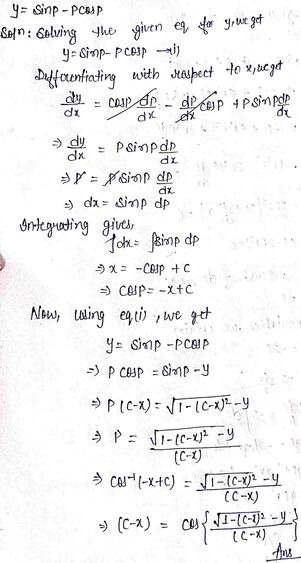 y = sinp - pcosp
Soln: Solving the given eq for y, we get
y = sinp - pcosp —(i)
Differentiating with respect to x, we get
dy/dx = cosp dp/dx - dp/dx cosp + p sinp dp/dx
⇒ dy/dx = p sinp dp/dx
⇒ p = p sinp dp/dx
⇒ dx = sinp dp
Integrating gives,
∫dx = ∫sinp dp
⇒ x = -cosp + c
⇒ cosp = -x+c
Now, using eq(i), we get
y = sinp - pcosp
⇒ p cosp = sinp - y
⇒ p(c-x) = √(1-(c-x)²) - y
⇒ p = (√(1-(c-x)²) - y)/(c-x)
⇒ cos⁻¹(-x+c) = (√(1-(c-x)²) - y)/(c-x)
⇒ (c-x) = cos{(√(1-(c-x)²) - y)/(c-x)}
Ans